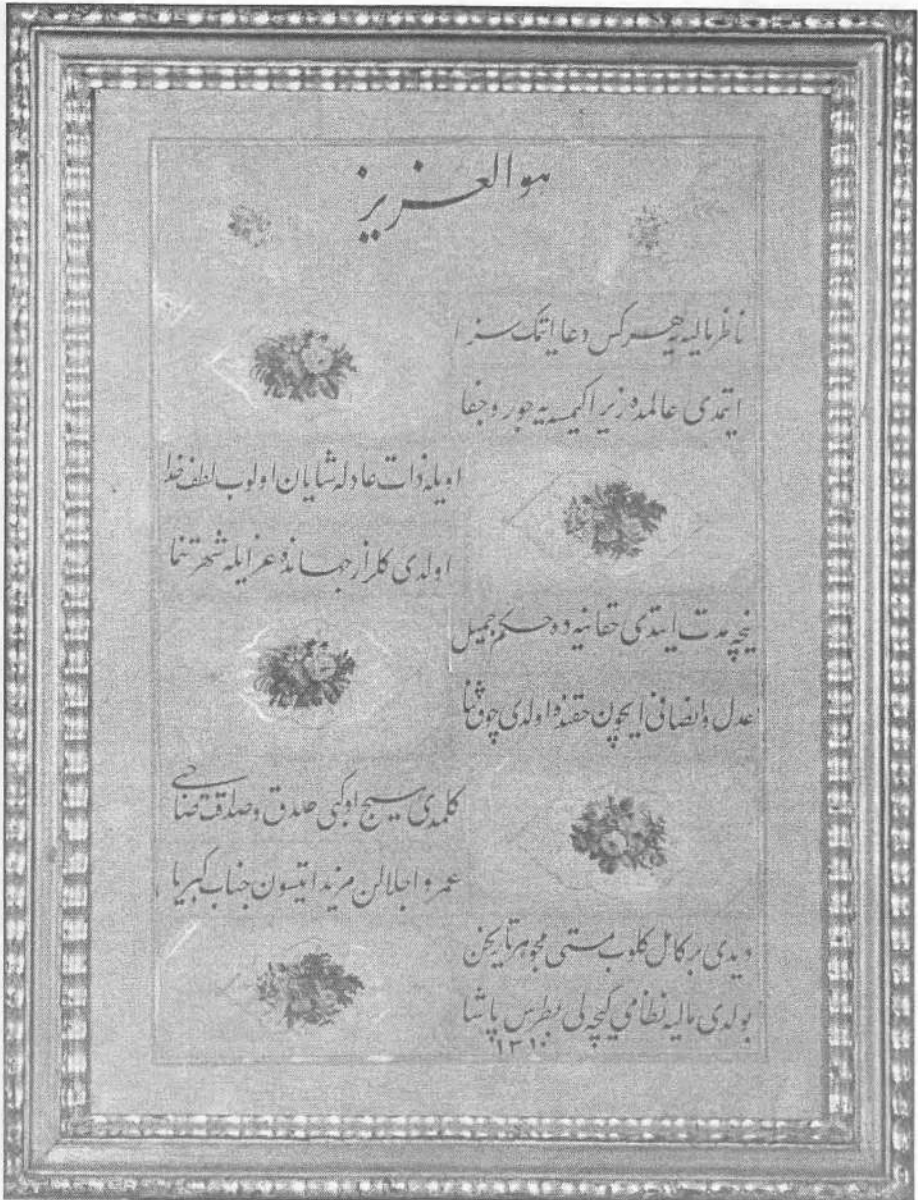 هو العزيز
ناظر ماليه يه هركس دعا ايتمك سزا
ايتمدى عالمده زيرا كيمسه يه جور و جفا
اويله ذات عادله شايان اولوب لطف خدا
اولدى كلزار جهانده عز ايله شهرتنما
نيجه مدت ايتدى حقانيه ده حكم جميل
عدل و انصافى ايچون حقنده اولدى چوق ثنا
كلمدى هيچ اوكى صدق و صداقت صاحبى
عمر و اجلالن مزيد ايتسون جناب كبريا
ديدى بر كامل كلوب مستى مجوهر تاريخن
بولدى ماليه نظامى كيجه لى بطرس پاشا
١٣١٠